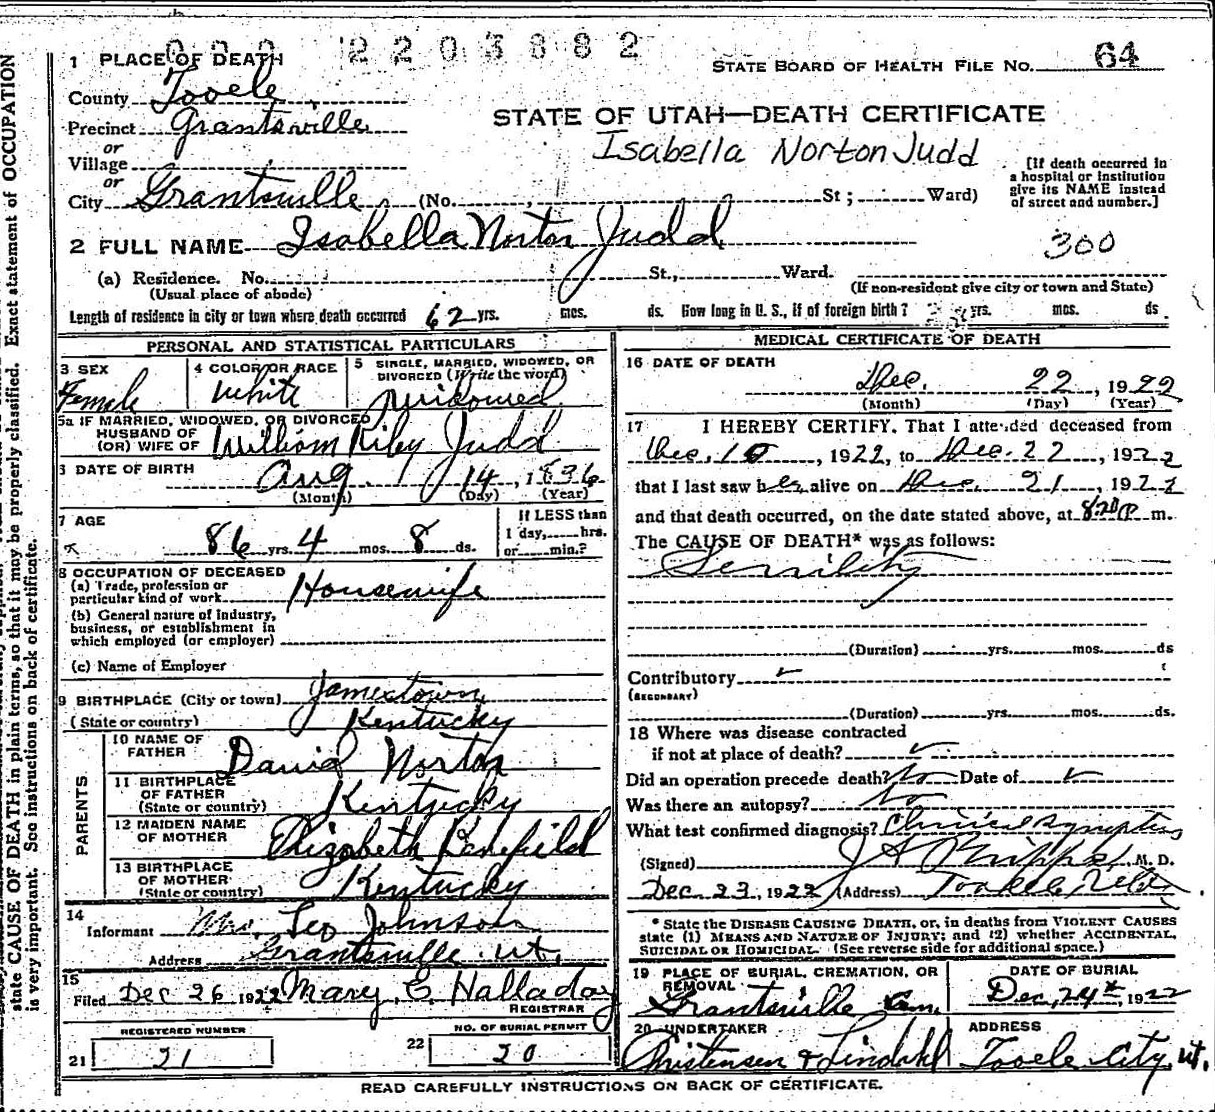 2203882
1 PLACE OF DEATH
STATE BOARD OF HEALTH FILE NO. 64
County Tooele
STATE OF UTAH—DEATH CERTIFICATE
Precinct Grantsville
or
Isabella Norton Judd
Village
or
City Grantsville (No. St; Ward)
[If death occurred in
a hospital or institution
give its NAME instead
of street and number.]
2 FULL NAME Isabella Norton Judd
300
(a) Residence. No. St., Ward.
(Usual place of abode)
(If non-resident give city or town and State)
Length of residence in city or town where death occurred 62 yrs. mos. ds. How long in U. S., if of foreign birth? yrs. mos. ds
PERSONAL AND STATISTICAL PARTICULARS
3 SEX
Female
4 COLOR OR RACE
White
5 SINGLE, MARRIED, WIDOWED, OR
DIVORCED (Write the word)
Widowed
5a IF MARRIED, WIDOWED, OR DIVORCED
HUSBAND OF
(OR) WIFE OF William Riley Judd
6 DATE OF BIRTH
Aug. 14, 1836
(Month) (Day) (Year)
7 AGE
86 yrs. 4 mos. 8 ds.
If LESS than
1 day, hrs.
or min.?
8 OCCUPATION OF DECEASED
(a) Trade, profession or
particular kind of work Housewife
(b) General nature of industry,
business, or establishment in
which employed (or employer)
(c) Name of Employer
9 BIRTHPLACE (City or town) Jamestown
(State or country) Kentucky
PARENTS
10 NAME OF
FATHER David Norton
11 BIRTHPLACE
OF FATHER
(State or country) Kentucky
12 MAIDEN NAME
OF MOTHER Elizabeth Benefield
13 BIRTHPLACE
OF MOTHER
(State or country) Kentucky
14
Informant Mrs. Leo Johnson
Address Grantsville Ut.
15
Filed Dec 26 1922 Mary E Halladay
REGISTRAR
REGISTERED NUMBER
21 21
NO. OF BURIAL PERMIT
22 20
MEDICAL CERTIFICATE OF DEATH
16 DATE OF DEATH
Dec. 22, 1922
(Month) (Day) (Year)
17 I HEREBY CERTIFY, That I attended deceased from
Dec. 10, 1922, to Dec. 22, 1922
that I last saw her alive on Dec. 21, 1922
and that death occurred, on the date stated above, at 8:20 P. m.
The CAUSE OF DEATH* was as follows:
Senility
(Duration) yrs. mos. ds
Contributory
(SECONDARY)
(Duration) yrs. mos. ds.
18 Where was disease contracted
if not at place of death?
Did an operation precede death? No Date of
Was there an autopsy? No
What test confirmed diagnosis? Clinical symptoms
(Signed) J A Phipps, M. D.
Dec 23, 1922 (Address) Tooele Utah
* State the DISEASE CAUSING DEATH, or, in deaths from VIOLENT CAUSES
state (1) MEANS AND NATURE OF INJURY; and (2) whether ACCIDENTAL,
SUICIDAL OR HOMICIDAL. (See reverse side for additional space.)
19 PLACE OF BURIAL, CREMATION, OR
REMOVAL
Grantsville Cem.
DATE OF BURIAL
Dec, 24th, 1922
20 UNDERTAKER
Christensen & Lindahl
ADDRESS
Tooele City, Ut.
READ CAREFULLY INSTRUCTIONS ON BACK OF CERTIFICATE.
state CAUSE OF DEATH in plain terms, so that it may be properly classified. Exact statement of OCCUPATION
is very important. See instructions on back of certificate.